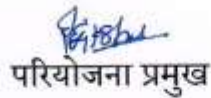 परियोजना प्रमुख